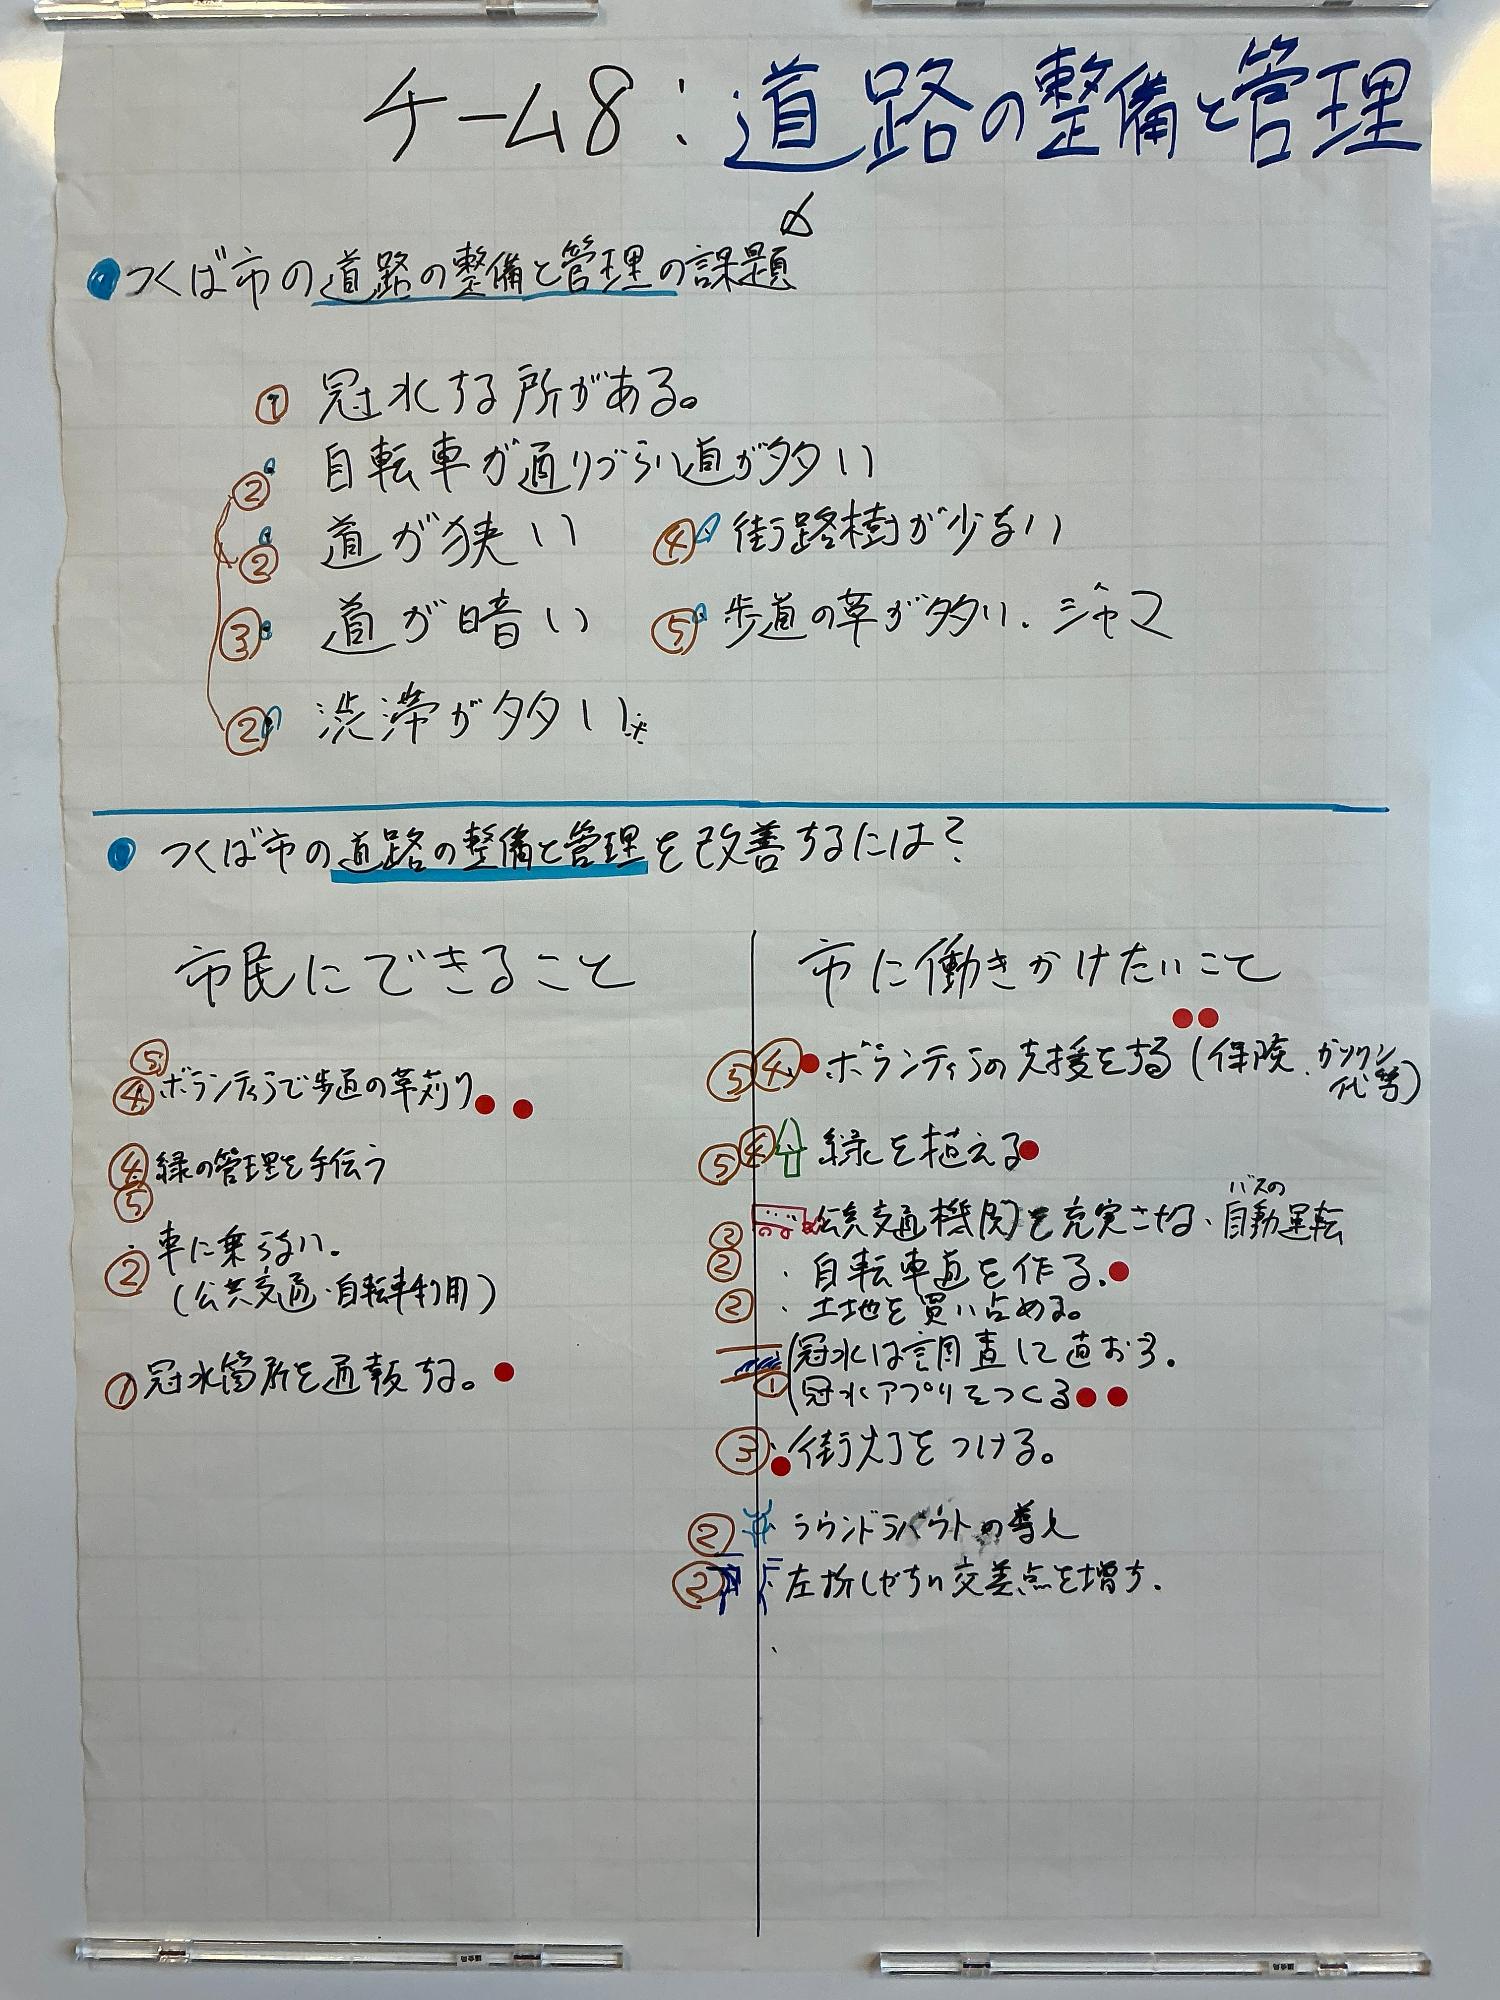 チーム8：道路の整備と管理
つくば市の道路の整備と管理の課題
① 冠水する所がある。
② 自転車が通りづらい道が多い
② 道が狭い
④ 街路樹が少ない
③ 道が暗い
⑤ 歩道の草が多い、ジャマ
② 渋滞が多い
つくば市の道路の整備と管理を改善するには？
市民にできること
⑤
④ ボランティアで歩道の草刈り
④ 緑の管理を手伝う
⑤
② 車に乗らない。
（公共交通・自転車利用）
① 冠水箇所を通報する。
市に働きかけたいこと
⑤ ④ ボランティアの支援をする（保険、ガソリン
代等）
⑤ ④ 緑を植える
バスの
② 公共交通機関を充実させる、自動運転
② ・自転車道を作る。
② ・土地を買い占める。
冠水は調査して直おす。
① 冠水アプリをつくる
③ 街灯をつける。
② ラウンドアバウトの導入
② 左折しやすい交差点を増す。